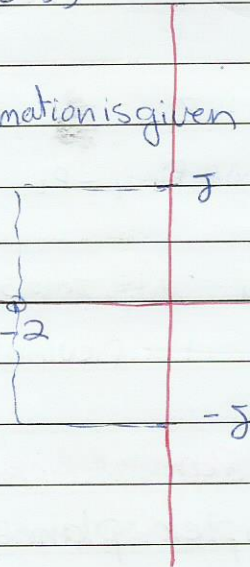 mation is given
J
-2
-J